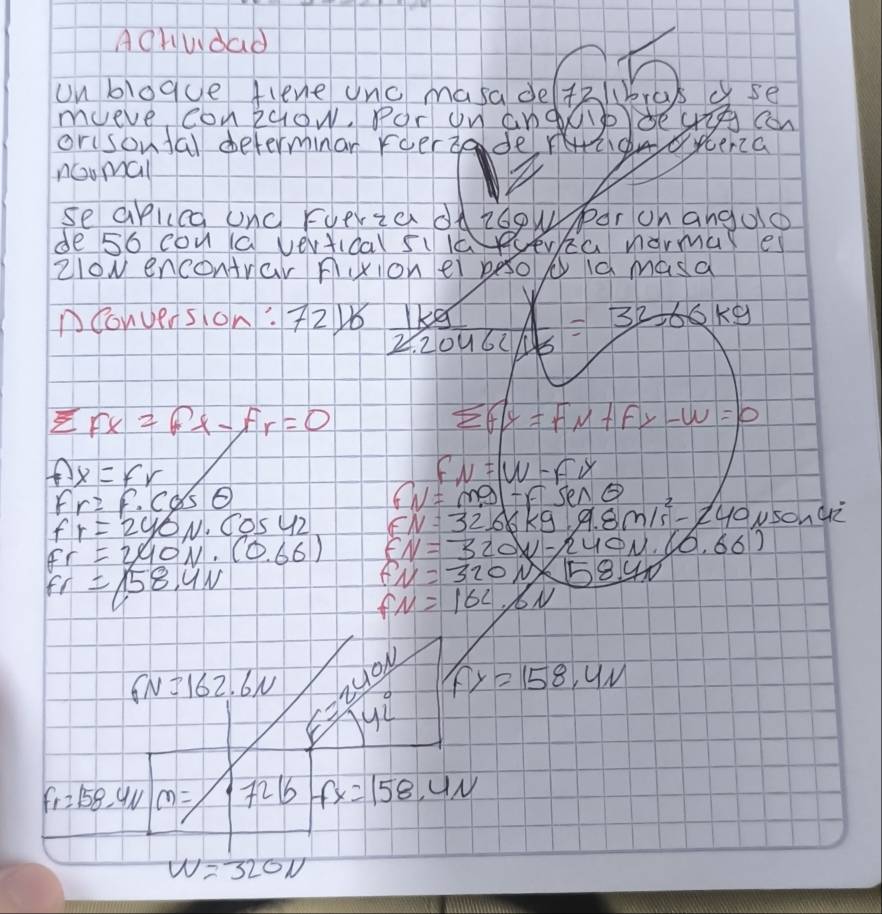 Actividad
un bloque tiene una masa de 72 libras y se
mueve con 240N. Por un angulo de 42° con
orisontal determinar Fuerza de fuerza
normal
se aplica una Fuerza de 260N por un angulo
de 56 con la vertical si la fuerza normal es
210N encontrar Fixion el peso y la masa
Conversion: 72 lb 1kg / 2.20462 lb = 32.66 kg
Σ Fx = Fx - Fr = 0
Σ Fy = FN + Fy - W = 0
Fx = Fr
FN = W - Fy
Fr = F. Cos θ
FN = mg - F sen θ
Fr = 240N. Cos 42
FN = 32.66 kg. 9.8 m/s² - 240N sen 42
Fr = 240N. (0.66)
FN = 320N - 240N. (0.66)
Fr = 158.4N
FN = 320N - 158.4N
FN = 162.6N
FN = 162.6N
F = 240N
Fy = 158.4N
42
Fr = 158.4N
m = 72 lb
Fx = 158.4N
W = 320N